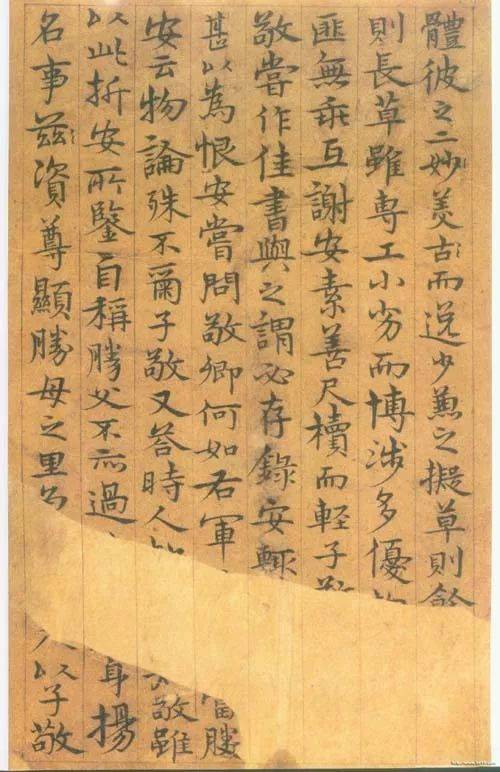 體彼之二妙美古而逸少兼之擬草則餘
則長草雖專工小劣而博涉多優
匪無乖互謝安素善尺櫝而輕子敬
敬嘗作佳書與之謂必存錄安輙
甚以為恨安嘗問敬卿何如右軍 當勝
安云物論殊不爾子敬又荅時人 敬雖
以此折安所鑒自稱勝父不亦過 身揚
名事茲資尊顯勝母之里 以子敬